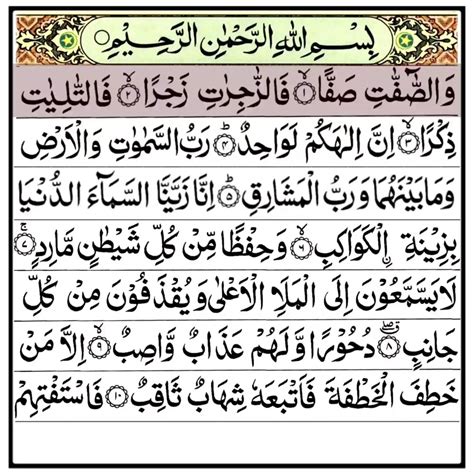 بِسْمِ اللهِ الرَّحْمٰنِ الرَّحِيْمِ
وَالصّٰٓفّٰتِ صَفًّا ۝١ فَالزّٰجِرٰتِ زَجْرًا ۝٢ فَالتّٰلِيٰتِ
ذِكْرًا ۝٣ اِنَّ اِلٰهَكُمْ لَوَاحِدٌ ۝٤ رَبُّ السَّمٰوٰتِ وَالْاَرْضِ
وَمَا بَيْنَهُمَا وَرَبُّ الْمَشَارِقِ ۝٥ اِنَّا زَيَّنَّا السَّمَآءَ الدُّنْيَا
بِزِيْنَةِ ࣙالْكَوَاكِبِ ۝٦ وَحِفْظًا مِّنْ كُلِّ شَيْطٰنٍ مَّارِدٍ ۝٧
لَا يَسَّمَّعُوْنَ اِلَى الْمَلَاِ الْاَعْلٰى وَيُقْذَفُوْنَ مِنْ كُلِّ
جَانِبٍ ۝٨ دُحُوْرًا وَّلَهُمْ عَذَابٌ وَّاصِبٌ ۝٩ اِلَّا مَنْ
خَطِفَ الْخَطْفَةَ فَاَتْبَعَهٗ شِهَابٌ ثَاقِبٌ ۝١٠ فَاسْتَفْتِهِمْ